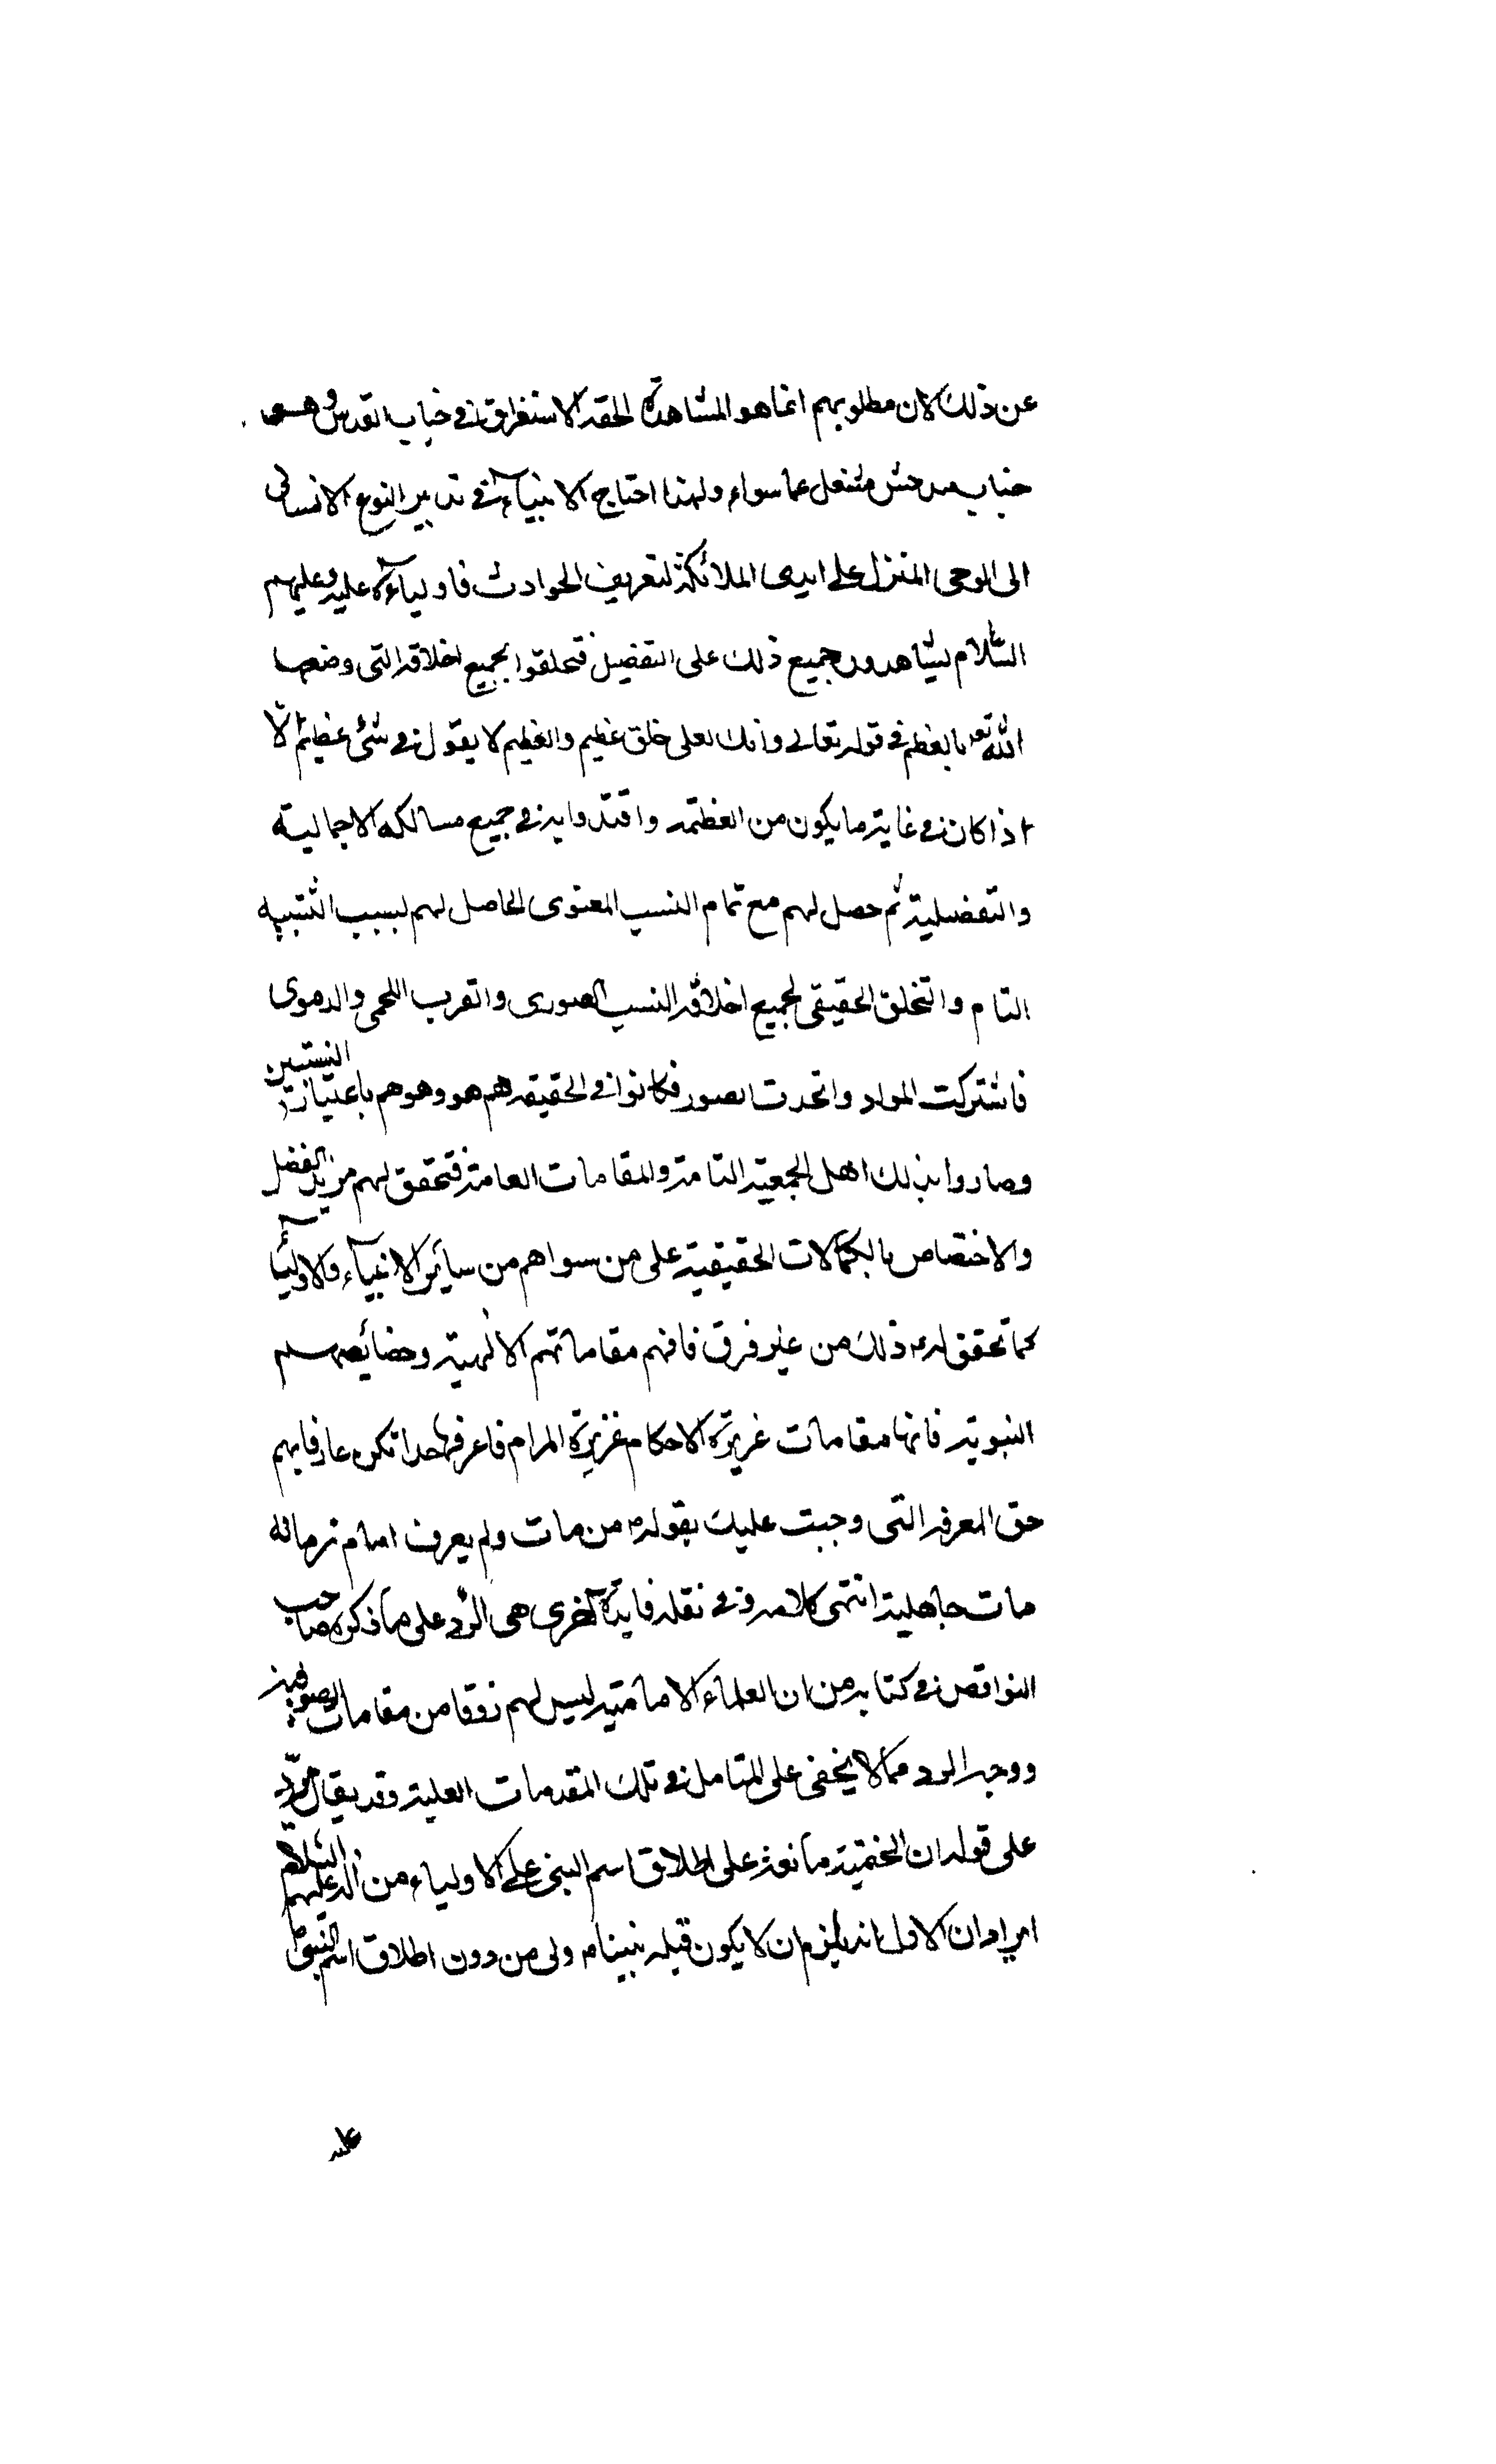 عن ذلك لان مطلوبهم انما هو المشاهدة الحقه الاستغراق في جناب القدس وهو
جناب مدهش مشغل عما سواه ولهذا احتاج الانبياء في تدبير النوع الانسانى
الى الوحى المنزل على ايدى الملائكة لتعريف الحوادث فاولياؤه عليه وعليهم
السلام يشاهدون جميع ذلك على التفضيل فتخلقوا بجميع اخلاقه التى وضعها
الله تع بالعظم في قوله تعالى وانك لعلى خلق عظيم والعظيم لا يقول في شئ عظيم الّا
اذا كان في غاية ما يكون من العظمة واقتدوا به في جميع مسالكه الاجمالية
والتفضيلية ثم حصل لهم مع تمام النسب المعنوى الحاصل لهم بسبب التشبيه
التام والتخلق الحقيقى بجميع اخلاقه النسب الصورى والقرب اللحمى والدموى
فاشتركت المواد واتحدت الصور فكانوا في الحقيقه هم هو وهو هم باعتبارات النسبتين
وصاروا بذلك اهل الجمعية التامة والمقامات العامة فتحقق لهم مزيد الفضل
والاختصاص بالكمالات الحقيقية على من سواهم من سائر الانبياء والاولياء
كما تحقق له ذلك من غير فرق فافهم مقاماتهم الالهية وخصائصهم
النبوية فانها مقامات غريزة الاحكام عزيزة المرام فاعرفها جدا تكن عارفا بهم
حق المعرفة التى وجبت عليك بقوله من مات ولم يعرف امام زمانه
مات جاهلية انتهى كلامه وفي نقله فايدة اخرى هى الرد على ما ذكره صاحب
النواقص في كتابه من ان العلماء الامامية ليس لهم ذوقا من مقامات الصوفية
ووجه الرد مما لا يخفى على المتامل في تلك المقدمات العلية وقد يقال يرد
على قوله ان الختمية مانعة على اطلاق اسم النبى على الاولياء من اله عليهم السلام
امران الاول انه يلزم ان لا يكون قبله نبينا ولى من دون اطلاق اسم النبى
عليه